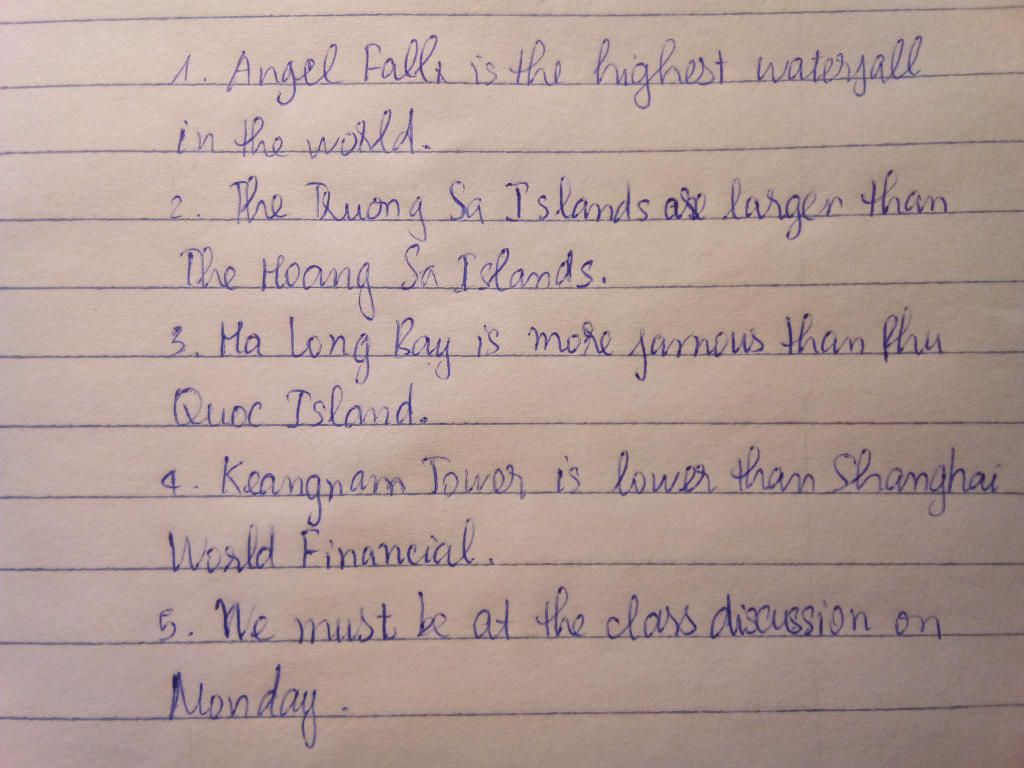 1. Angel Falls is the highest waterfall
in the world.
2. The Truong Sa Islands are larger than
The Hoang Sa Islands.
3. Ha Long Bay is more famous than Phu
Quoc Island.
4. Keangnam Tower is lower than Shanghai
World Financial.
5. We must be at the class discussion on
Monday.